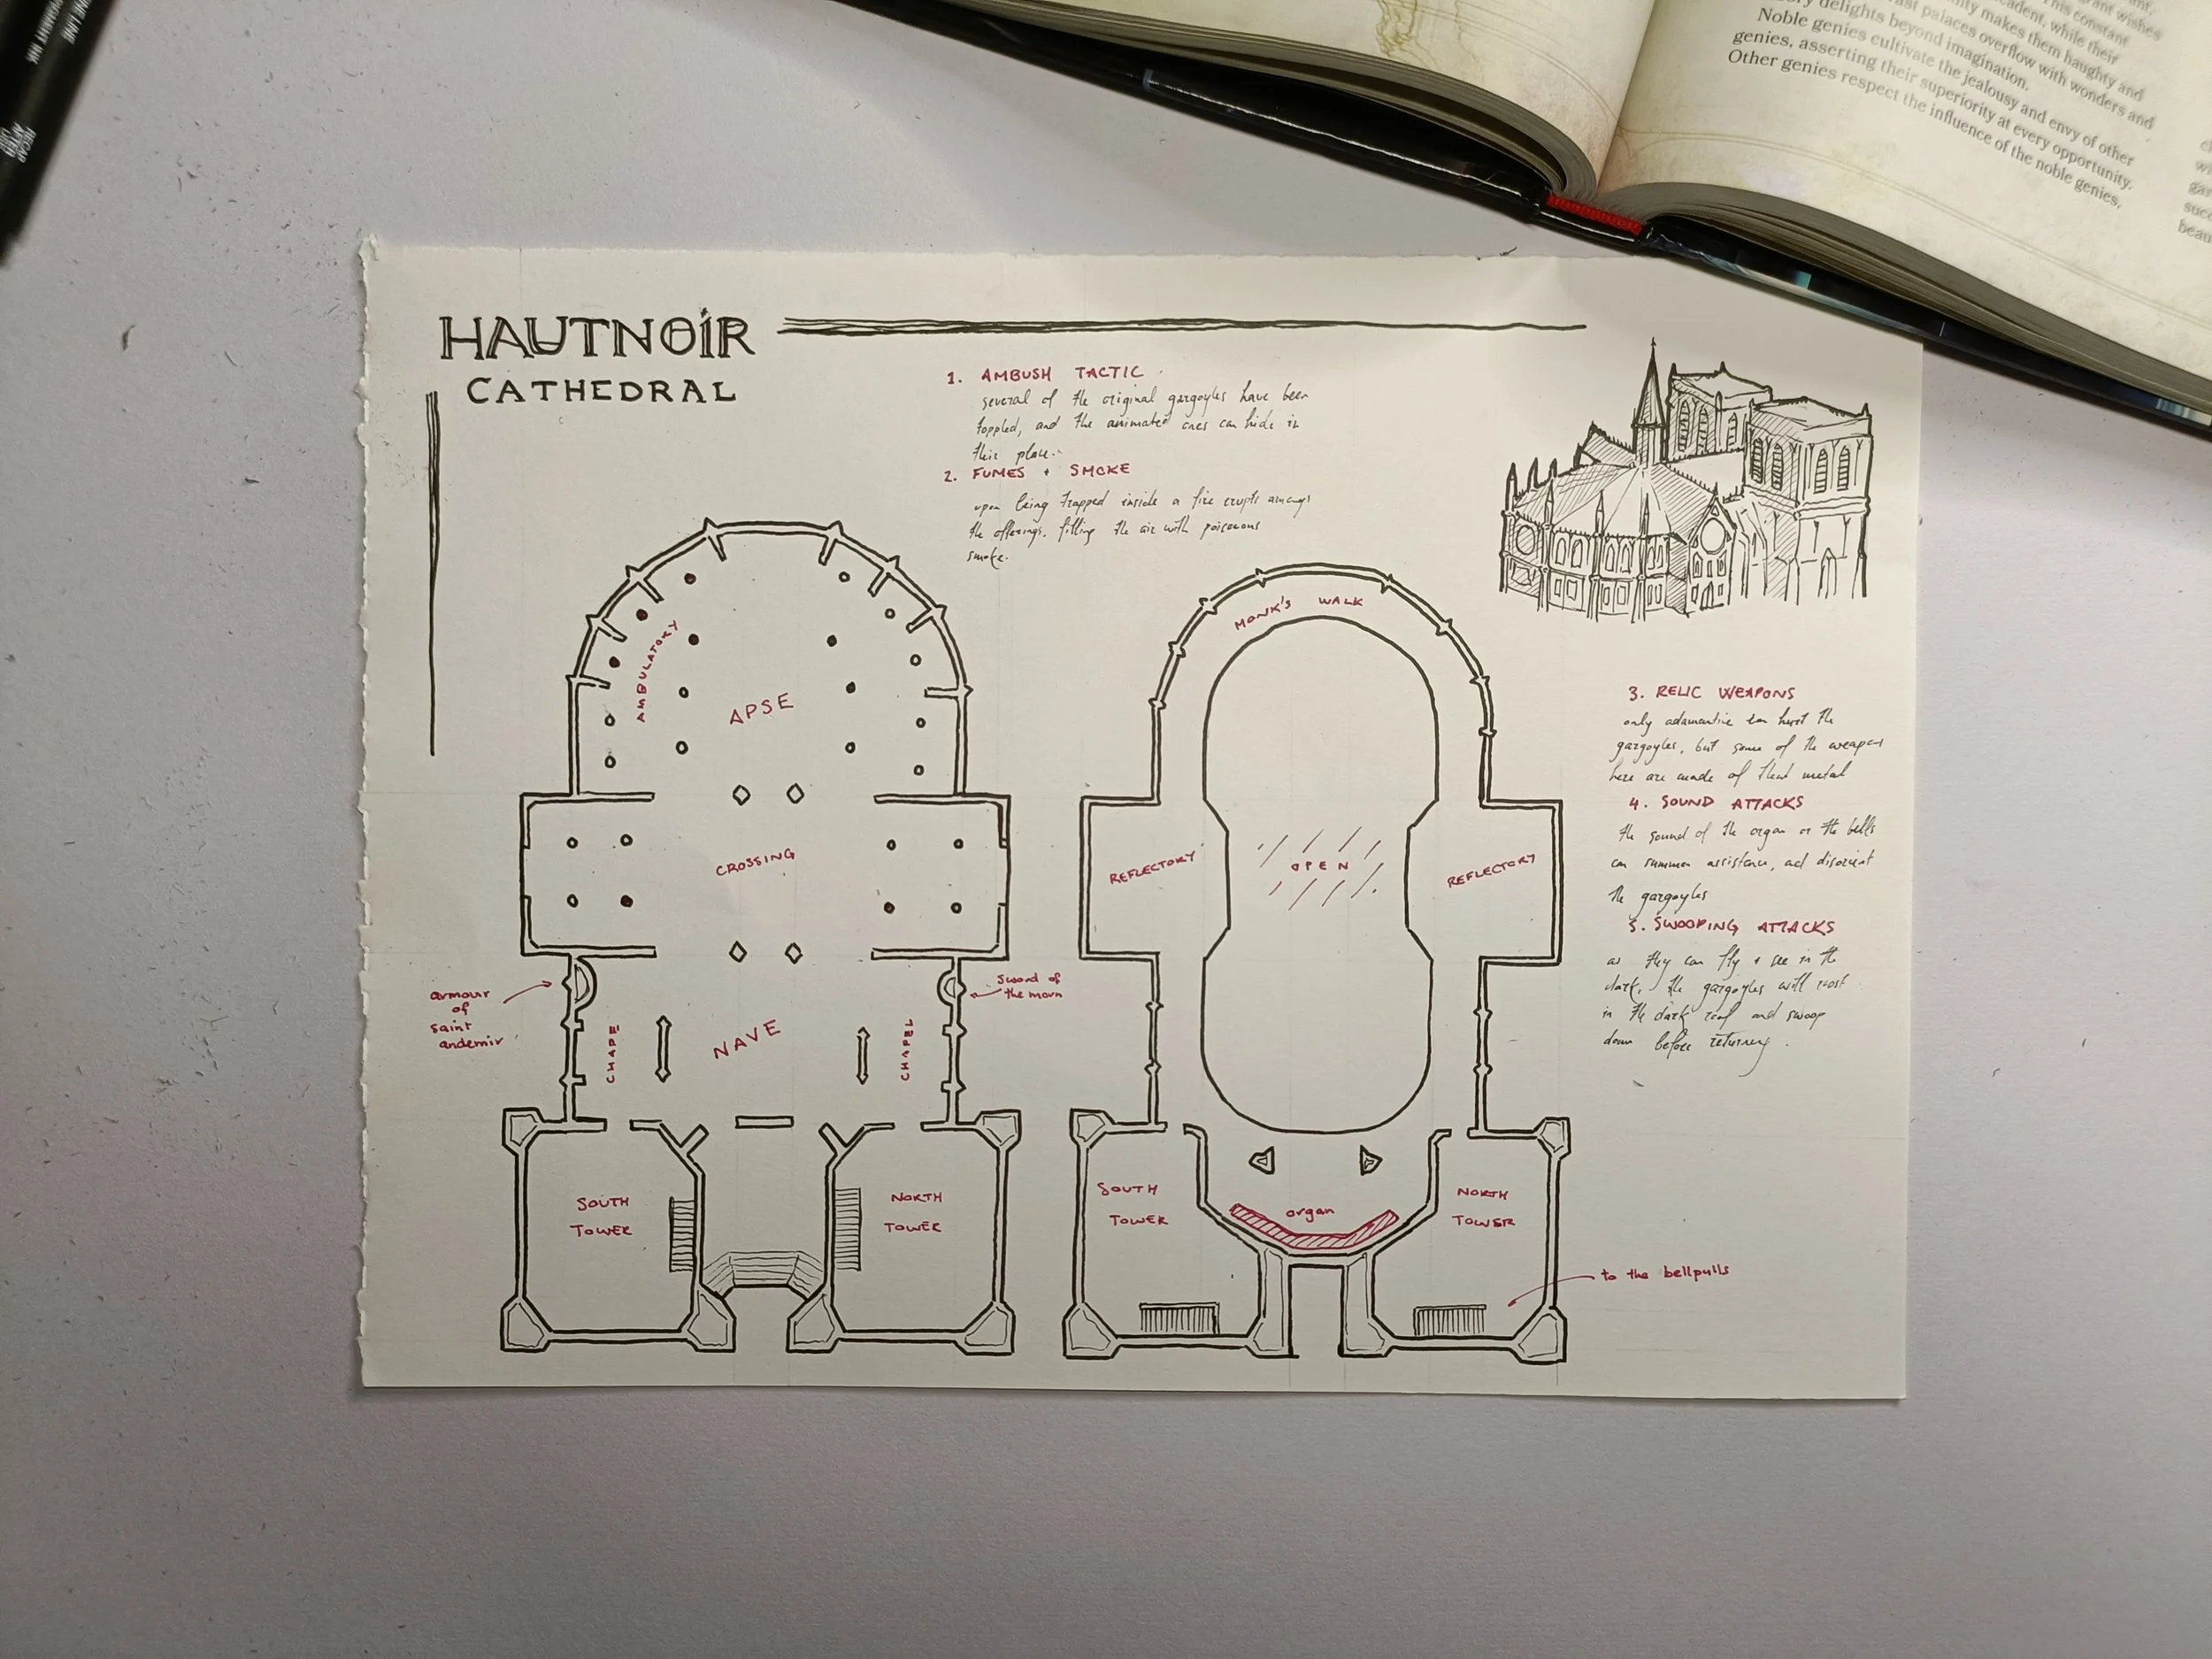 FINE LINE
PERMANENT INK
RECAP
AFTER
USE
grant wishes
This constant
decadent, while their
makes them haughty and
vast palaces overflow with wonders and
delights beyond imagination.
Noble genies cultivate the jealousy and envy of other
genies, asserting their superiority at every opportunity.
Other genies respect the influence of the noble genies,
HAUTNOIR
CATHEDRAL
1. AMBUSH TACTIC
several of the original gargoyles have been
toppled, and the animated ones can hide in
their place.
2. FUMES + SMOKE
upon being trapped inside a fire erupts amongs
the offerings. filling the air with poisonous
smoke.
3. RELIC WEAPONS
only adamantine can hurt the
gargoyles, but some of the weapons
here are made of that metal
4. SOUND ATTACKS
the sound of the organ or the bells
can summon assistance, and disorient
the gargoyles
5. SWOOPING ATTACKS
as they can fly + see in the
dark, the gargoyles will roost
in the dark roof and swoop
down before returning.
AMBULATORY
APSE
CROSSING
armour
of
saint
andemir
sword of
the morn
CHAPE
NAVE
CHAPEL
SOUTH
TOWER
NORTH
TOWER
MONK'S WALK
REFLECTORY
OPEN
REFLECTORY
SOUTH
TOWER
organ
NORTH
TOWER
to the bellpulls